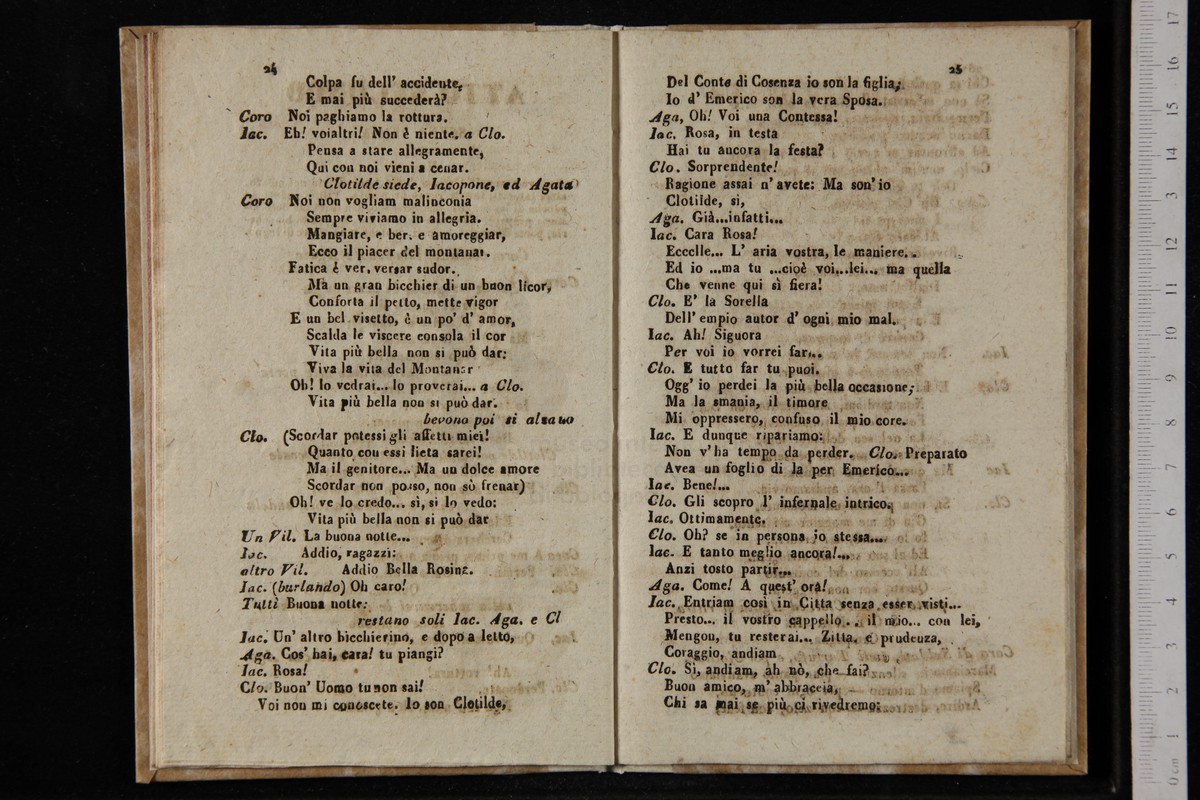 24
Colpa fu dell' accidente,
E mai più succederà?
Coro Noi paghiamo la rottura.
Iac. Eh! voialtri! Non è niente. a Clo.
Pensa a stare allegramente,
Qui con noi vieni a cenar.
Clotilde siede, Iacopone, ed Agata
Coro Noi non vogliam malinconia
Sempre viviamo in allegria.
Mangiare, e ber. e amoreggiar,
Ecco il piacer del montanar.
Fatica è ver, versar sudor.
Ma un gran bicchier di un buon licor,
Conforta il petto, mette vigor
E un bel visetto, è un po' d' amor,
Scalda le viscere consola il cor
Vita più bella non si può dar:
Viva la vita del Montanar
Oh! lo vedrai... lo proverai... a Clo.
Vita più bella non si può dar.
bevono poi si alzano
Clo. (Scordar potessi gli affetti miei!
Quanto con essi lieta sarei!
Ma il genitore... Ma un dolce amore
Scordar non posso, non sò frenar)
Oh! ve lo credo... sì, si lo vedo:
Vita più bella non si può dar
Un Vil. La buona notte...
Iac. Addio, ragazzi:
altro Vil. Addio Bella Rosina.
Iac. (burlando) Oh caro!
Tutti Buona notte:
restano soli Iac. Aga. e Cl
Iac. Un' altro bicchierino, e dopo a letto,
Aga. Cos' hai, cara! tu piangi?
Iac. Rosa!
Clo. Buon' Uomo tu non sai!
Voi non mi conoscete. Io son Clotilde,
25
Del Conte di Cosenza io son la figlia;
Io d' Emerico son la vera Sposa.
Aga, Oh! Voi una Contessa!
Iac. Rosa, in testa
Hai tu ancora la festa?
Clo. Sorprendente!
Ragione assai n' avete: Ma son' io
Clotilde, sì,
Aga. Già...infatti...
Iac. Cara Rosa!
Eccelle... L' aria vostra, le maniere..
Ed io ...ma tu ...cioè voi...lei... ma quella
Che venne qui sì fiera!
Clo. E' la Sorella
Dell' empio autor d' ogni mio mal.
Iac. Ah! Signora
Per voi io vorrei far...
Clo. E tutto far tu puoi.
Ogg' io perdei la più bella occasione;
Ma la smania, il timore
Mi oppressero, confuso il mio core.
Iac. E dunque ripariamo:
Non v' ha tempo da perder. Clo. Preparato
Avea un foglio di la per Emerico...
Iac. Bene!...
Clo. Gli scopro l' infernale intrico,
Iac. Ottimamente.
Clo. Oh? se in persona io stessa...
Iac. E tanto meglio ancora!...
Anzi tosto partir...
Aga. Come! A quest' orà!
Iac. Entriam così in Citta senza esser visti...
Presto... il vostro cappello.. il mio... con lei,
Mengon, tu resterai... Zitta, e prudenza,
Coraggio, andiam
Clo. Si, andiam, ah nò, che fai?
Buon amico, m' abbraccia,
Chi sa mai se più ci rivedremo: